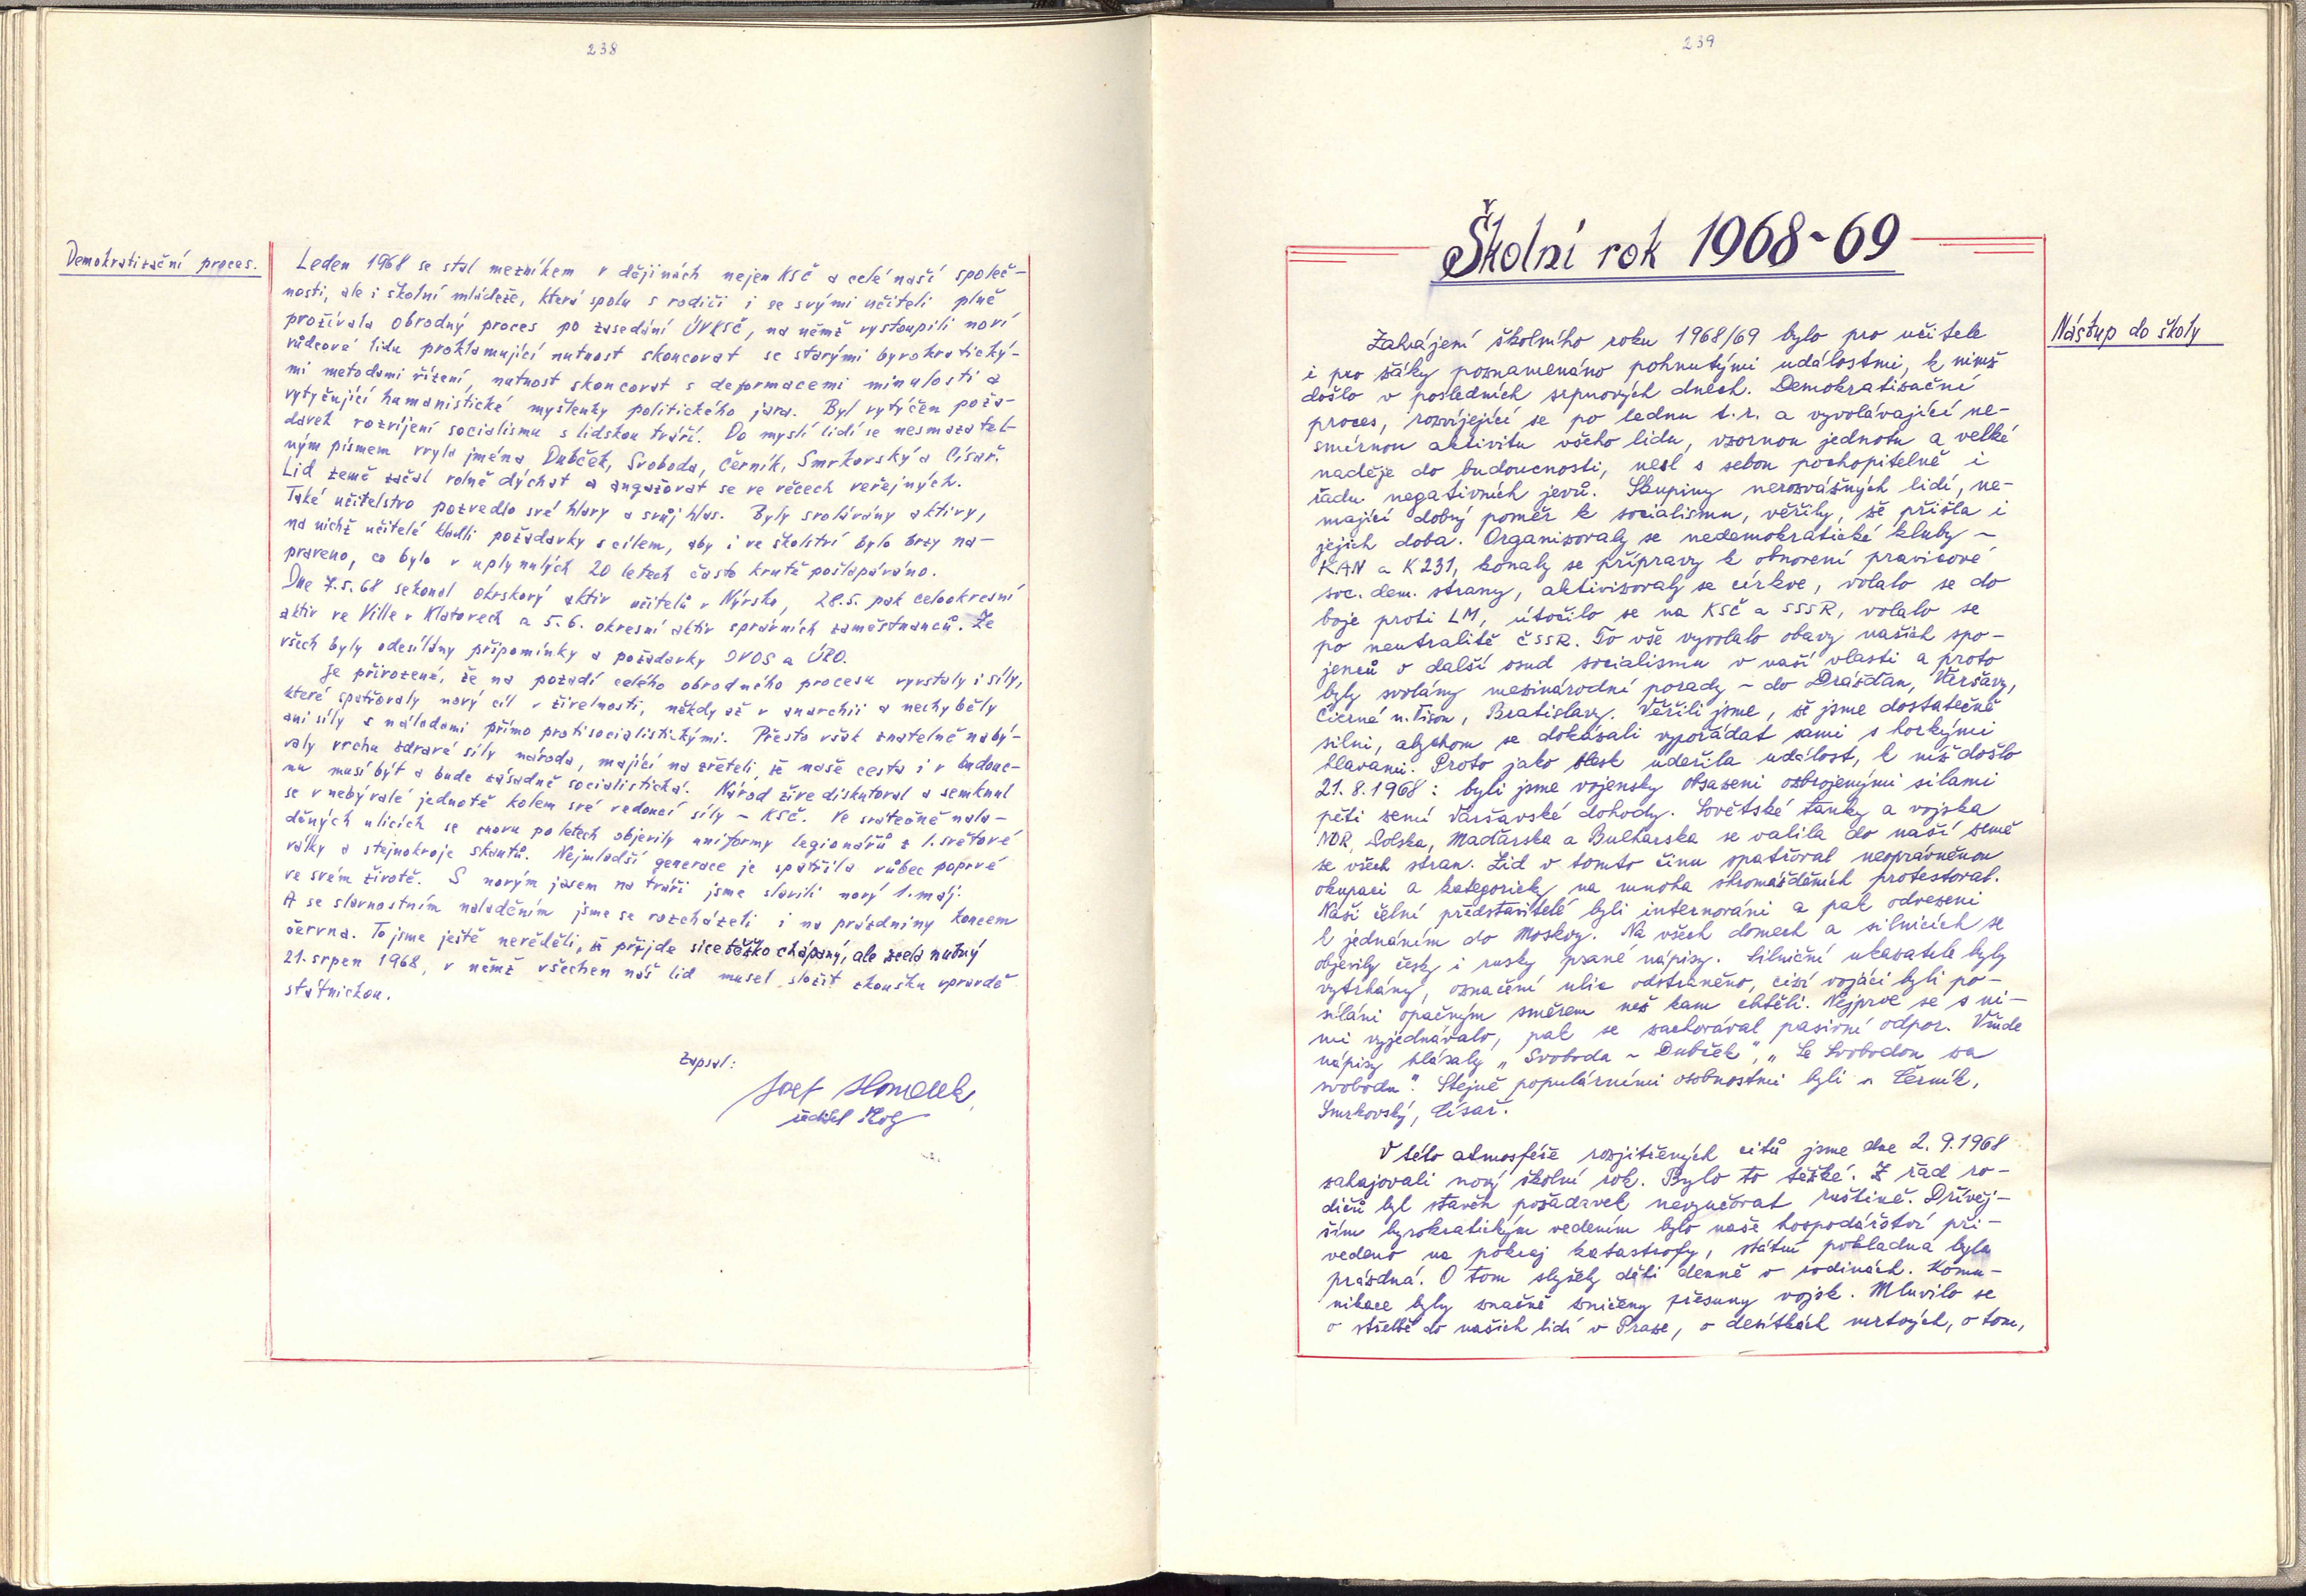 238
Demokratizační proces.
Leden 1968 se stal mezníkem v dějinách nejen KSČ a celé naší společ-
nosti, ale i školní mládeže, která spolu s rodiči i se svými učiteli plně
prožívala obrodný proces po zasedání ÚVKSČ, na němž vystoupili noví
vůdcové lidu proklamující nutnost skoncovat se starými byrokratický-
mi metodami řízení, nutnost skoncovat s deformacemi minulosti a
vytyčující humanistické myšlenky politického jara. Byl vytýčen poža-
davek rozvíjení socialismu s lidskou tváří. Do myslí lidí se nesmazatel-
ným písmem vryla jména Dubček, Svoboda, Černík, Smrkovský a Císař.
Lid země začal volně dýchat a angažovat se ve věcech veřejných.
Také učitelstvo pozvedlo své hlavy a svůj hlas. Byly svolávány aktivy,
na nichž učitelé kladli požadavky s cílem, aby i ve školství bylo brzy na-
praveno, co bylo v uplynulých 20 letech často krutě pošlapáváno.
Dne 7.5.68 se konal okrskový aktiv učitelů v Nýrsko, 28.5. pak celookresní
aktiv ve Ville v Klatovech a 5.6. okresní aktiv správních zaměstnanců. Ze
všech byly odesílány připomínky a požadavky OVOS a ÚRO.
Je přirozené, že na pozadí celého obrodného procesu vyvstaly i síly,
které spatřovaly nový cíl v živelnosti, někdy až v anarchii a nechyběly
ani síly s náladami přímo protisocialistickými. Přesto však znatelně nabý-
valy vrchu zdravé síly národa, mající na zřeteli, že naše cesta i v budouc-
nu musí být a bude zásadně socialistická. Národ živě diskutoval a semknul
se v nebývalé jednotě kolem své vedoucí síly – KSČ. Ve svátečně nala-
děných ulicích se znovu po letech objevily uniformy legionářů z 1. světové
války a stejnokroje skautů. Nejmladší generace je spatřila vůbec poprvé
ve svém životě. S novým jasem na tváři jsme slavili nový 1. máj.
A se slavnostním naladěním jsme se rozcházeli i na prázdniny koncem
června. To jsme ještě nevěděli, že přijde sice těžko chápaný, ale zcela nutný
21. srpen 1968, v němž všechen náš lid musel složit zkoušku opravdu
státnickou.
Zapsal:
Josef
ředitel školy
239
Školní rok 1968-69
Nástup do školy
Zahájení školního roku 1968/69 bylo pro učitele
i pro žáky poznamenáno pohnutými událostmi, k nimž
došlo v posledních srpnových dnech. Demokratisační
proces, rozvíjející se po lednu t.r. a vyvolávající ne-
smírnou aktivitu všeho lidu, vzornou jednotu a velké
naděje do budoucnosti, nesl s sebou pochopitelně i
řadu negativních jevů. Skupiny nerozvážných lidí, ne-
mající dobrý poměr k socialismu, věřily, že přišla i
jejich doba. Organizovaly se nedemokratické kluby –
KAN a K 231, konaly se přípravy k obnovení pravicové
soc. dem. strany, aktivizovaly se církve, volalo se do
boje proti LM, útočilo se na KSČ a SSSR, volalo se
po neutralitě ČSSR. To vše vyvolalo obavy našich spo-
jenců o další osud socialismu v naší vlasti a proto
byly svolány mezinárodní porady – do Drážďan, Varšavy,
Čierné n. Tisou, Bratislavy. Věřili jsme, že jsme dostatečně
silní, abychom se dokázali vypořádat sami s horkými
hlavami. Proto jako blesk udeřila událost, k níž došlo
21.8.1968: byli jsme vojensky obsazeni ozbrojenými silami
pěti zemí Varšavské dohody. Sovětské tanky a vojska
NDR, Polska, Maďarska a Bulharska se valila do naší země
ze všech stran. Lid v tomto činu spatřoval neoprávněnou
okupaci a kategoricky na mnoha shromážděních protestoval.
Naši čelní představitelé byli internováni a pak odvezeni
k jednáním do Moskvy. Na všech domech a silnicích se
objevily česky i rusky psané nápisy. Silniční ukazatele byly
vytrhány, označení ulic odstraněno, cizí vojáci byli po-
síláni opačným směrem než kam chtěli. Nejprve se s ni-
mi vyjednávalo, pak se zachovával pasivní odpor. Všude
nápisy hlásaly „Svoboda – Dubček", „Se Svobodou za
svobodu". Stejně populárními osobnostmi byli i Černík,
Smrkovský, Císař.
V této atmosféře rozjitřených citů jsme dne 2.9.1968
zahajovali nový školní rok. Bylo to těžké. Z řad ro-
dičů byl stavěn požadavek nevyučovat ruštině. Dřívěj-
ším byrokratickým vedením bylo naše hospodářství při-
vedeno na pokraj katastrofy, státní pokladna byla
prázdná. O tom slyšely děti denně v rodinách. Komu-
nikace byly značně zničeny přesuny vojsk. Mluvilo se
o střelbě do našich lidí v Praze, o desítkách mrtvých, o tom,